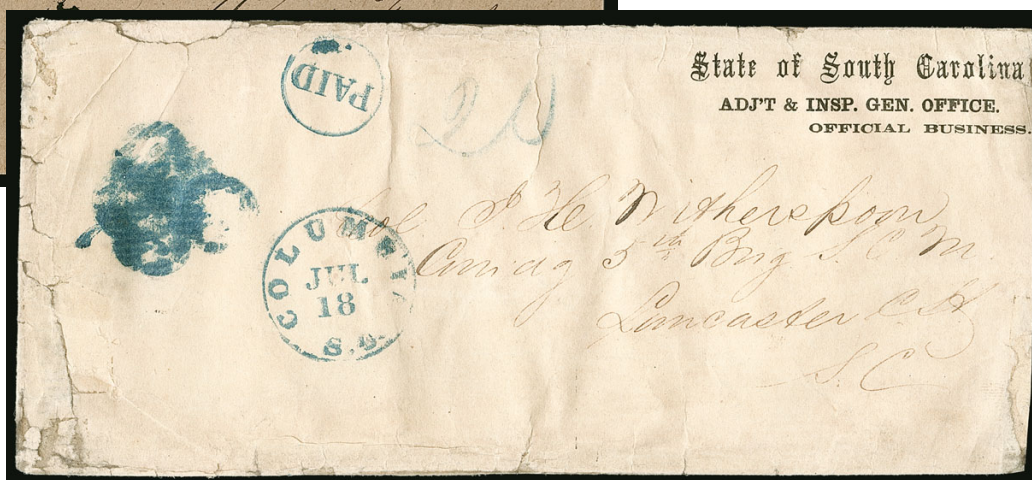 State of South Carolina
ADJ'T & INSP. GEN. OFFICE.
OFFICIAL BUSINESS.
PAID
COLUMBIA
JUL
18
S.C.
Col. J. H. Witherspoon
Comdg 5th Brig S. C. M.
Lancaster C. H.
S. C.